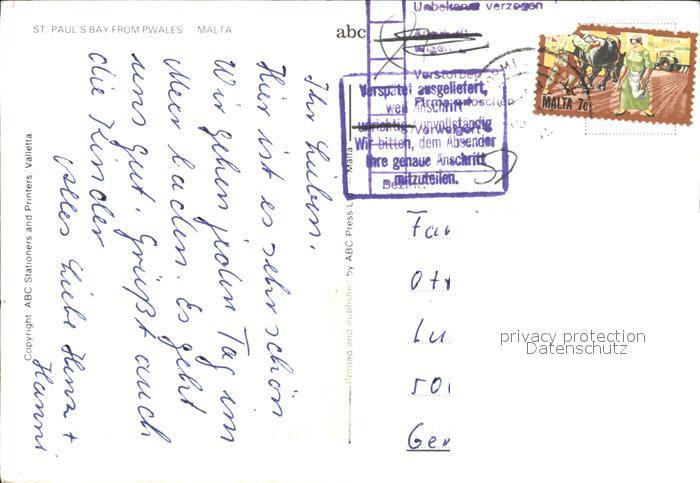 ST. PAUL'S BAY FROM PWALES MALTA
Ihr Lieben.
Hier ist es sehr schön
Wir gehen jeden Tag im
Meer baden. Es geht
uns gut. Grüßt auch
die Kinder
Alles Liebe Heinz +
Hanni
Copyright ABC Stationers and Printers, Valletta
Printed and Published by ABC Press L Malta
abc
Unbekannt verzogen
Verstorben
Firma erloschen
Verspätet ausgeliefert,
weil Anschrift
unrichtig / unvollständig
Wir bitten, dem Absender
Ihre genaue Anschrift
mitzuteilen.
MALTA 7c
Fa
Ot
Lu
50
Ge
privacy protection
Datenschutz